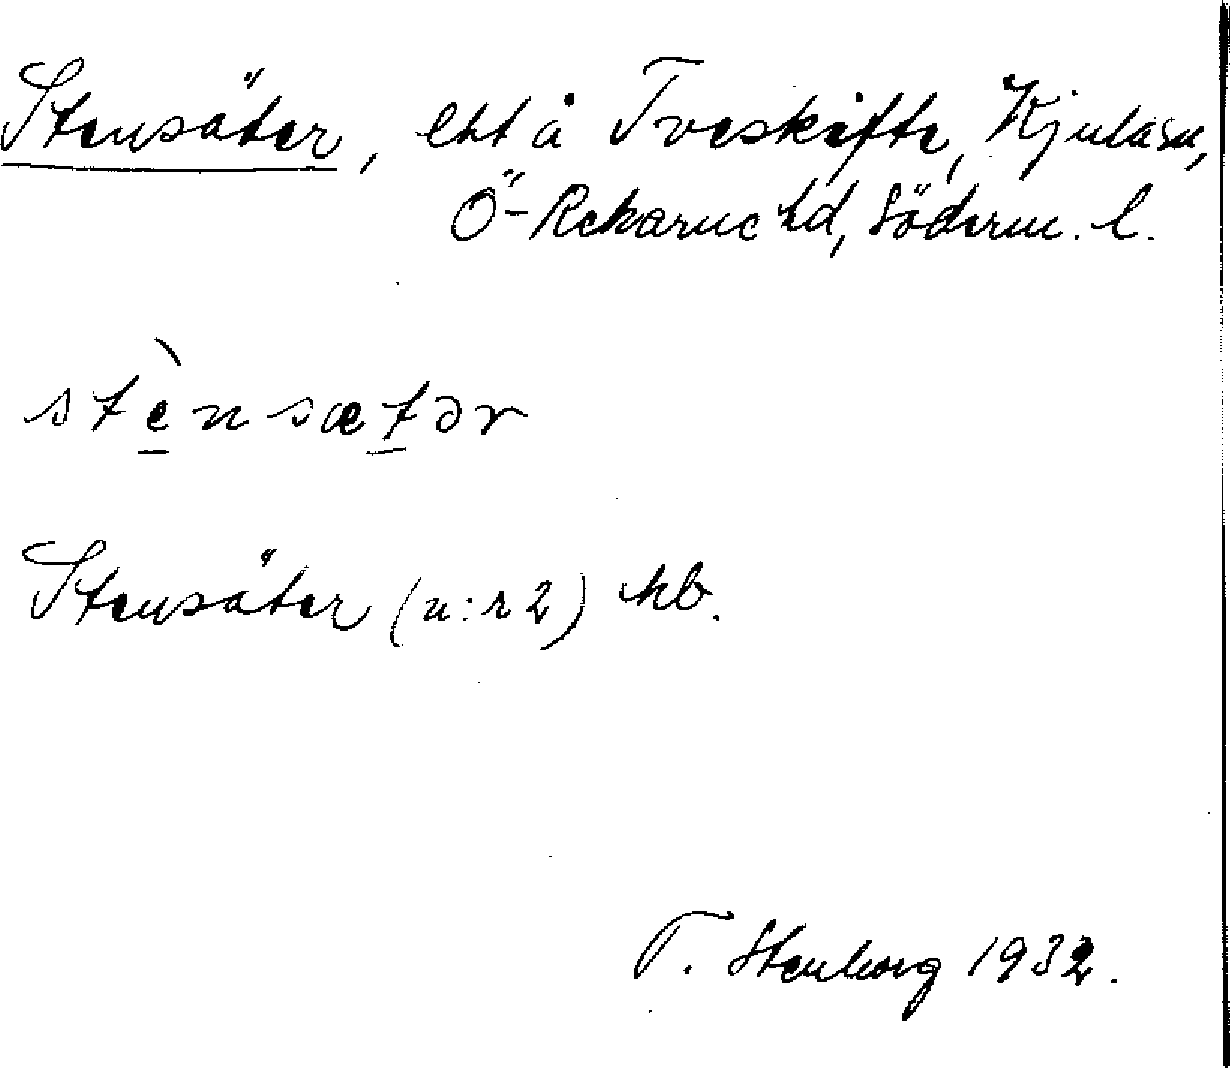 Stensäter, lht å Tveskifte, Kjula sn,
Ö-Rekarne hd, Söderm. l.
stènsætər
Stensäter (n:r 2) hb.
T. Stenborg 1932.